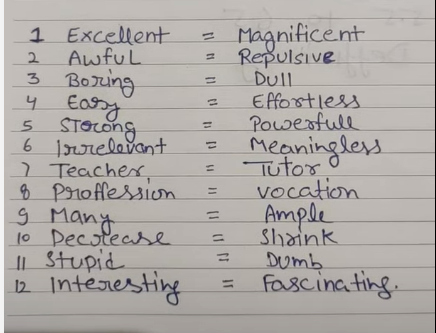 1 Excellent = Magnificent
2 Awful = Repulsive
3 Boring = Dull
4 Easy = Effortless
5 Strong = Powerfull
6 Irrelevant = Meaningless
7 Teacher = Tutor
8 Proffession = vocation
9 Many = Ample
10 Decrease = Shrink
11 Stupid = Dumb
12 Interesting = Fascinating.